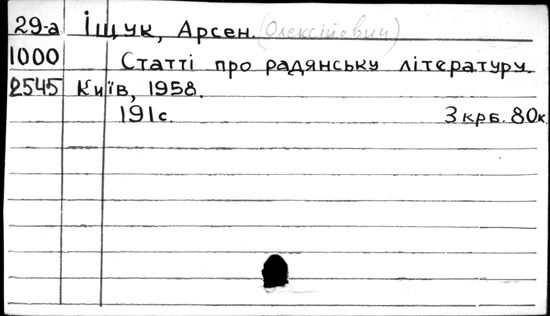 29-а Іщук, Арсен. (Олексійович)
1000 Статті про радянську літературу.
2545 Київ, 1958.
191с. 3 крб. 80к.